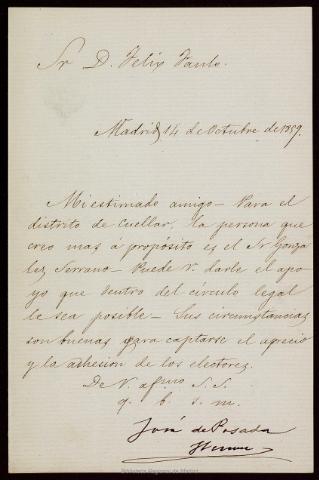 Sr D. Felix Fanlo.
Madrid 14 de Octubre de 1859.
Mi estimado amigo - Para el
distrito de Cuellar, la persona que
creo mas á proposito es el Sr Gonza
lez Serrano - Puede V. darle el apo
yo que dentro del círculo legal
le sea posible - Sus circunstancias
son buenas para captarse el aprecio
y la adhesion de los electores.
De V. afmo S. S.
q. b. s. m.
José de Posada
Herrera